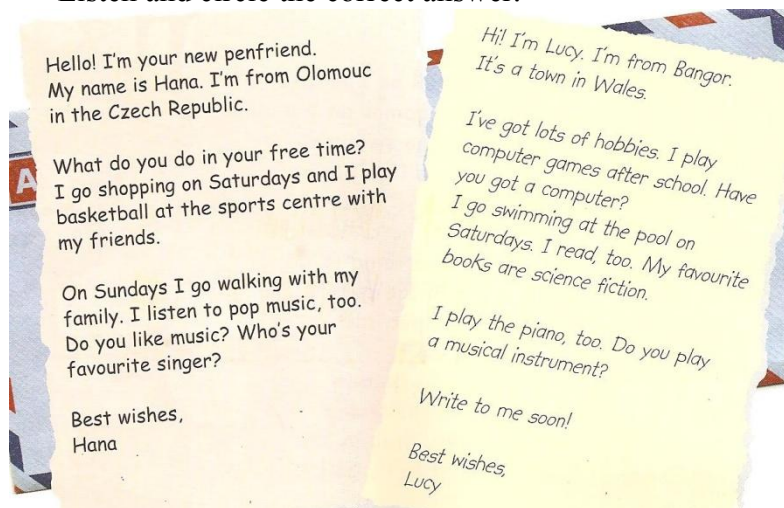 Listen and circle the correct answer.
Hello! I'm your new penfriend.
My name is Hana. I'm from Olomouc
in the Czech Republic.
What do you do in your free time?
I go shopping on Saturdays and I play
basketball at the sports centre with
my friends.
On Sundays I go walking with my
family. I listen to pop music, too.
Do you like music? Who's your
favourite singer?
Best wishes,
Hana
Hi! I'm Lucy. I'm from Bangor.
It's a town in Wales.
I've got lots of hobbies. I play
computer games after school. Have
you got a computer?
I go swimming at the pool on
Saturdays. I read, too. My favourite
books are science fiction.
I play the piano, too. Do you play
a musical instrument?
Write to me soon!
Best wishes,
Lucy